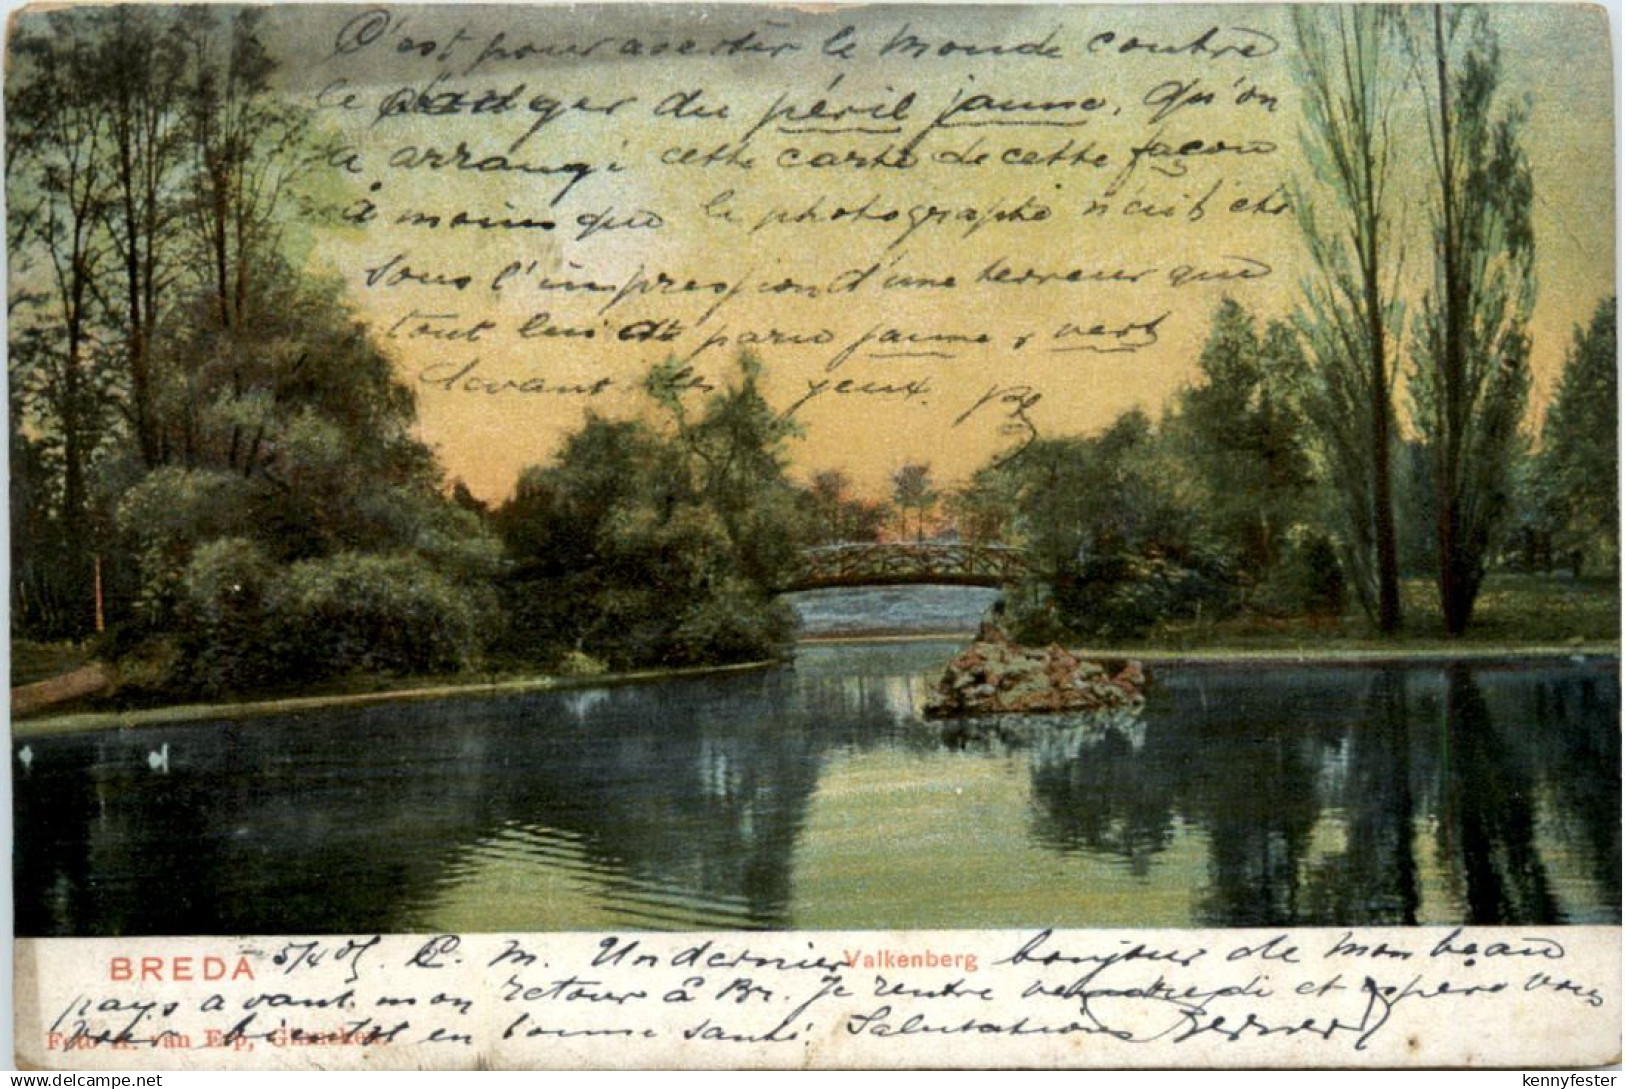 C'est pour avertir le monde contre
le danger du péril jaune, qu'on
a arrangé cette carte de cette façon
à moins que le photographe n'eut été
sous l'impression d'une terreur que
tout lui ait paru jaune & vert
devant les yeux.
BREDA 5/4 05. C. M. Un dernier Valkenberg bonjour de mon beau
pays avant mon retour à Br. Je rentre vendredi et espère vous
voir bientôt en bonne santé. Salutations
Foto H. van Erp, Ginneken.
kennyfester